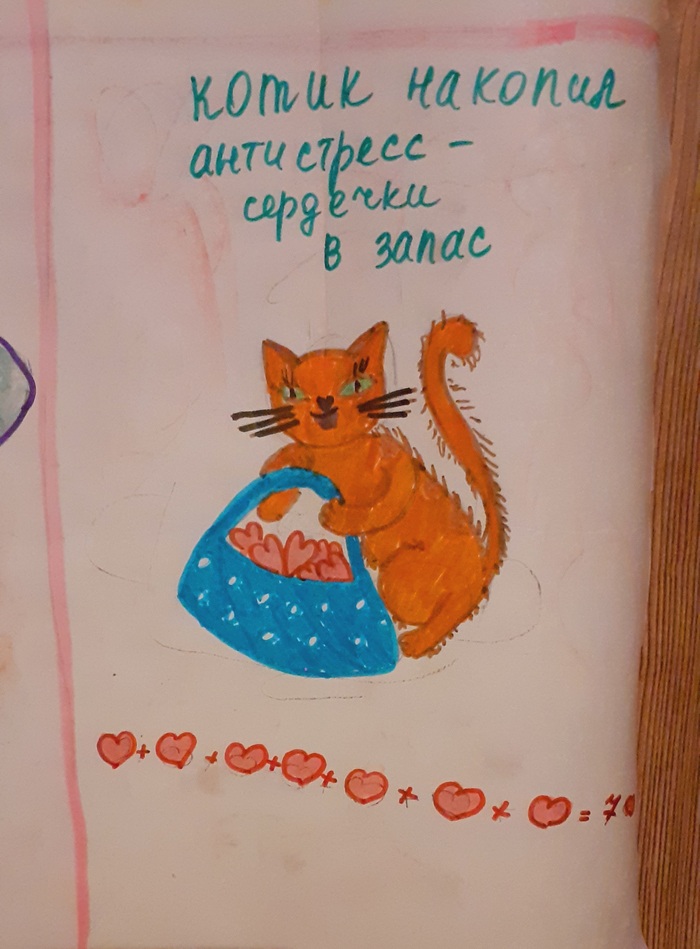 котик накопил
антистресс -
сердечки
в запас
♥+♥+♥+♥+♥+♥+♥=70